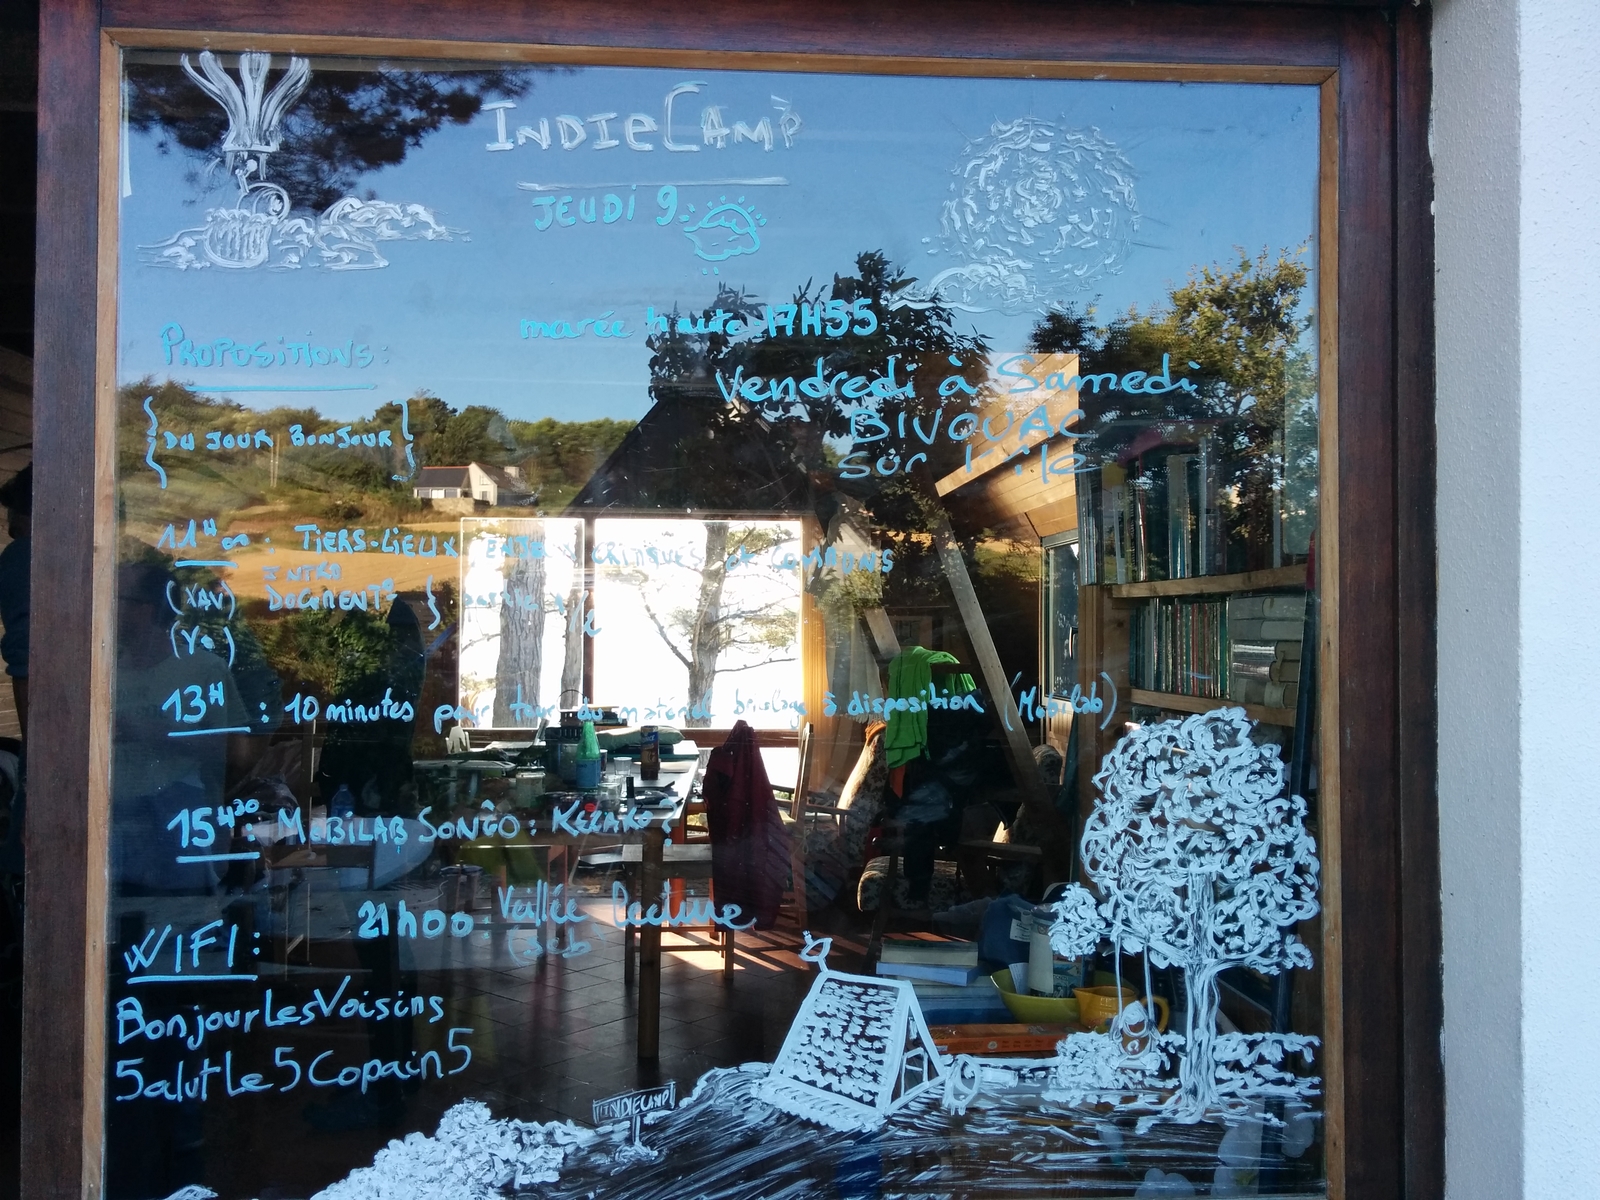 INDIECAMP
JEUDI 9
marée haute 17H55
PROPOSITIONS:
Vendredi à Samedi
BIVOUAC
sur l'île
{DU JOUR BONJOUR}
11H : TIERS-LIEUX ENJEUX CRITIQUES et COMMUNS
INTRO
(XAV) DOCUMENT°
(Yo)
13H : 10 minutes pour tour du matériel bricolage à disposition (Mobilab)
15H30 : MOBILAB SONGO : KEZAKO ?
21h00 : Veillée lecture
WIFI :
BonjourLesVoisins
5alutLe5Copain5
INDIECAMP